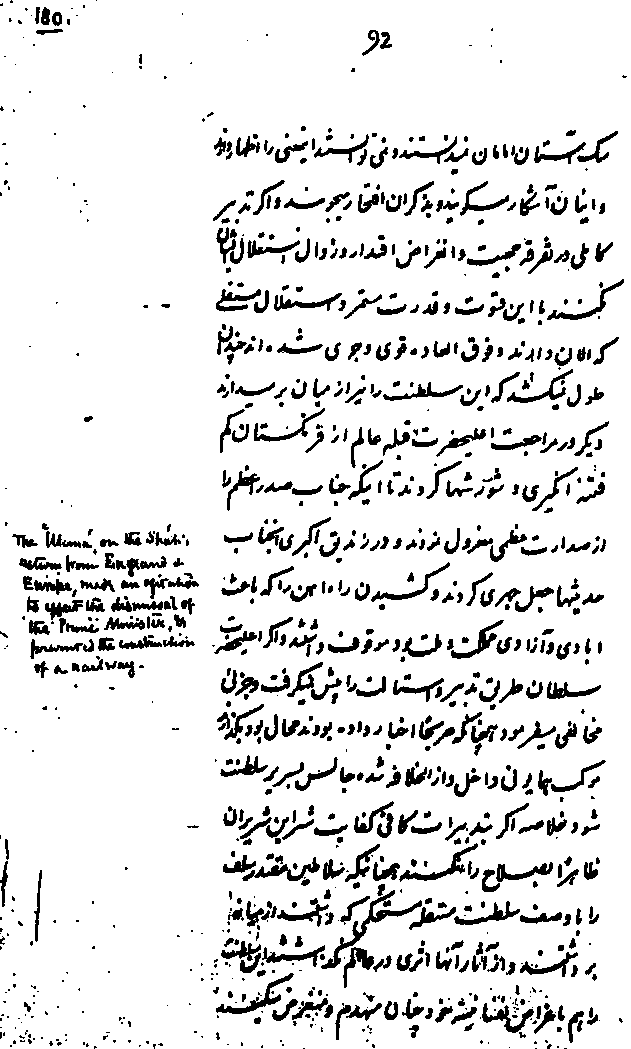 180.
92
سک آستان امامان نمیدانستند و نمیتوانستند اینمعنی را اظهار دارند
و اینان آشکار میگویند و بذکر آن افتخار میجویند و اگر تدبیر
کاملی در تفرقه جمعیت و انقراض اقتدار و زوال استقلال ایشان
نکنند با این قوت و قدرت مستمر و استقلال مستقلی
که الان دارند و فوق العاده قوی و جری شده اند چندان
طول نمیکشد که این سلطنت را نیز از میان بر میدارند
دیگر در مراجعت اعلیحضرت قبله عالم از فرنگستان کم
فتنه انگیزی و شورشها کردند تا اینکه جناب صدر اعظم را
از صدارت عظمی معزول نمودند و در زندیق اکبری آنجناب
حدیثها جعل جبری کردند و کشیدن راه اهن را که باعث
ابادی و آزادی مملکت و ملت بود موقوف داشتند و اگر اعلیحضرت
سلطان طریق تدبیر و استمالت را پیش نمیگرفت و جزئی
مخالفتی میفرمود همچنانکه صریحا اخبار داده بودند محال بود بگذارند
موکب همایون داخل دار الخلافه شده جالس بسریر سلطنت
شود خلاصه اگر بتدبیرات کافی کفایت شر این شریران
ظاهر الصلاح را نکنند همچنانیکه سلاطین مقتدر سلف
را با وصف سلطنت مستقله مستحکمی که داشتند از میان
برداشتند و از آثار آنها اثری در عالم نگذاشتند این سلطنت
را هم باغراض نفسانیه خودشان منهدم و منقرض میکنند
The 'Ulemá, on the Sháh's
return from England &
Europe, made an agitation
to effect the dismissal of
the Prime Minister, &
prevented the construction
of a railway.